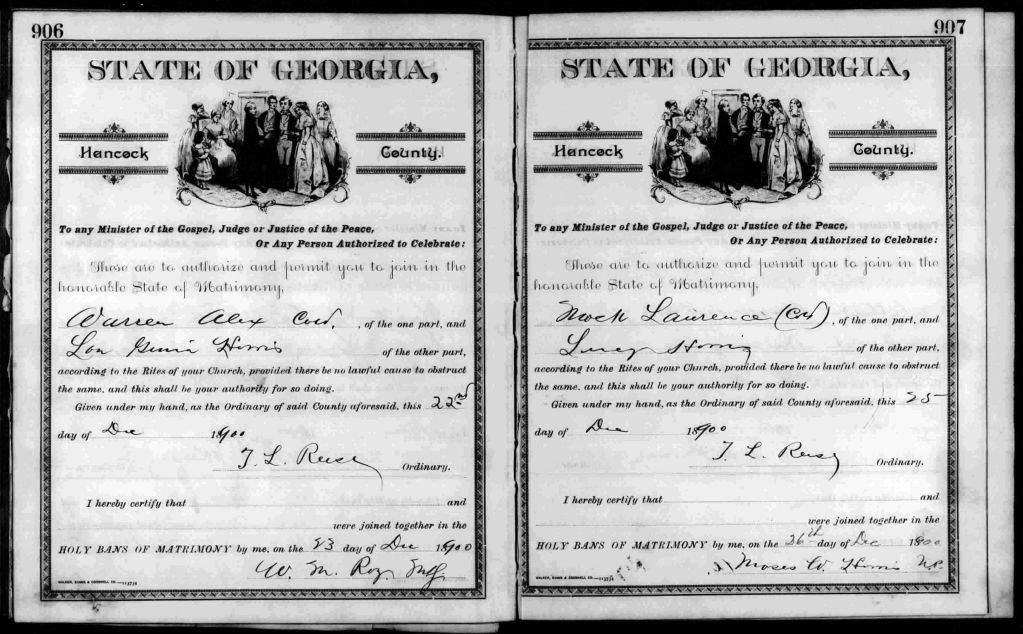 906
STATE OF GEORGIA,
Hancock County.
To any Minister of the Gospel, Judge or Justice of the Peace,
Or Any Person Authorized to Celebrate:
These are to authorize and permit you to join in the
honorable State of Matrimony,
Warren Alex Cold, of the one part, and
Lou Harris of the other part,
according to the Rites of your Church, provided there be no lawful cause to obstruct
the same, and this shall be your authority for so doing.
Given under my hand, as the Ordinary of said County aforesaid, this 22nd
day of Dec 1900
T. L. Reese Ordinary.
I hereby certify that and
were joined together in the
HOLY BANS OF MATRIMONY by me, on the 23 day of Dec 1900
W. M. Roy
WALKER, EVANS & COGSWELL CO.
907
STATE OF GEORGIA,
Hancock County.
To any Minister of the Gospel, Judge or Justice of the Peace,
Or Any Person Authorized to Celebrate:
These are to authorize and permit you to join in the
honorable State of Matrimony,
Laurence (Cold), of the one part, and
Lucy of the other part,
according to the Rites of your Church, provided there be no lawful cause to obstruct
the same, and this shall be your authority for so doing.
Given under my hand, as the Ordinary of said County aforesaid, this 25
day of Dec 1900
T. L. Reese Ordinary.
I hereby certify that and
were joined together in the
HOLY BANS OF MATRIMONY by me, on the 26th day of Dec 1900
Moses W. Harris
WALKER, EVANS & COGSWELL CO.